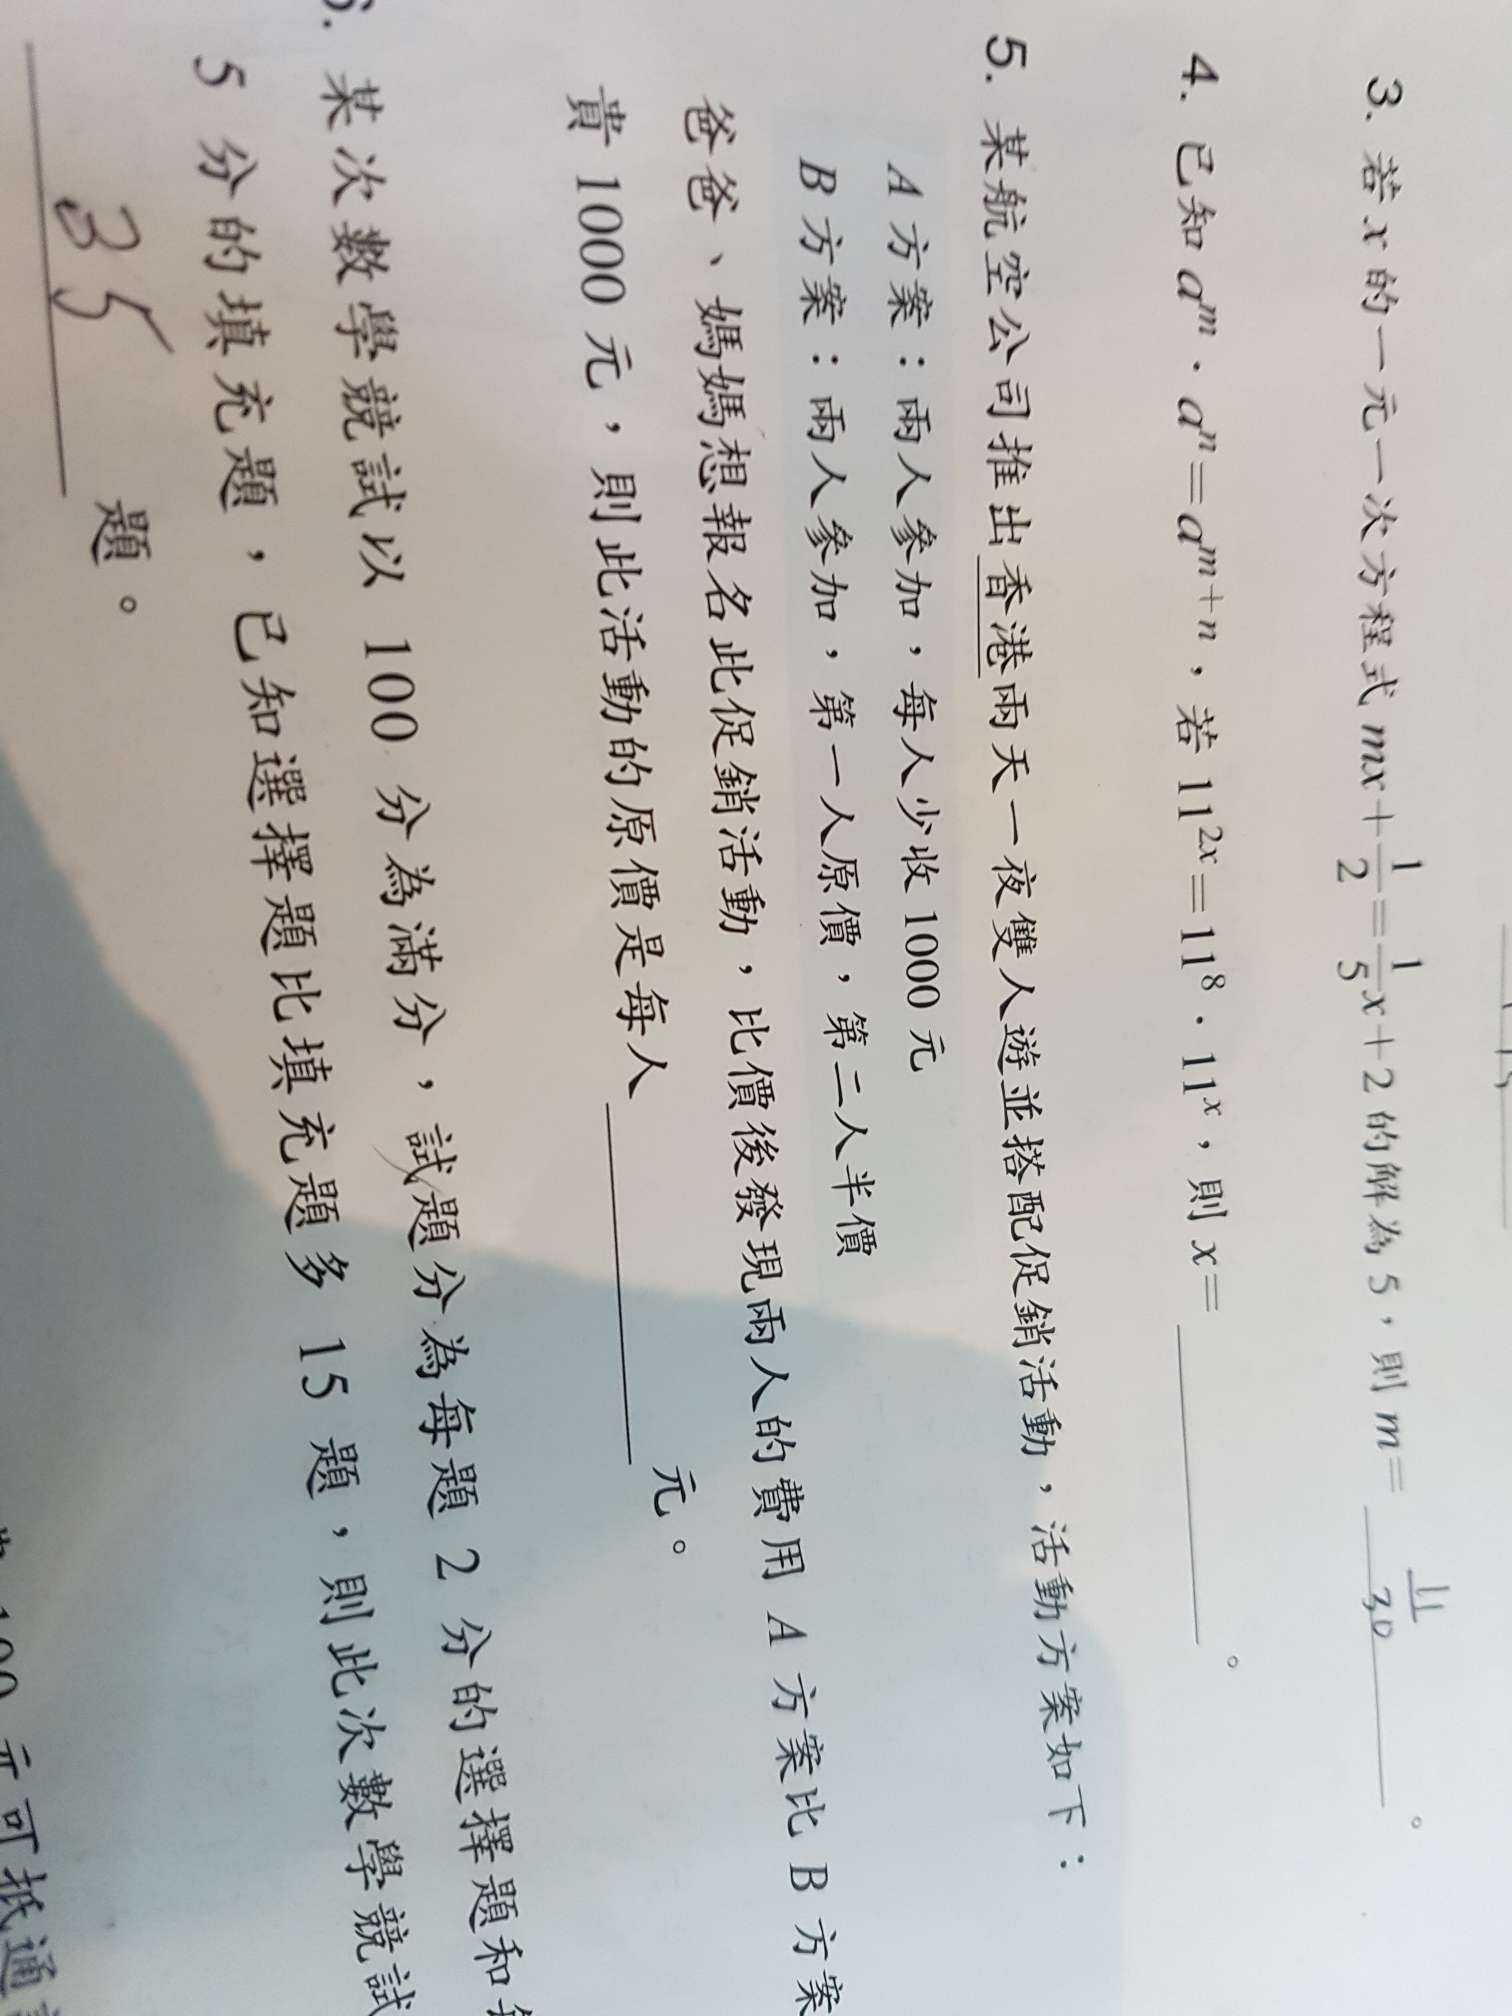 3. 若 x 的一元一次方程式 mx+1/2=1/5x+2 的解為 5,則 m= 11/30 。
4. 已知 aᵐ.aⁿ=aᵐ⁺ⁿ,若 11²ˣ=11⁸.11ˣ,則 x= 。
5. 某航空公司推出香港兩天一夜雙人遊並搭配促銷活動,活動方案如下:
A 方案:兩人參加,每人少收 1000 元
B 方案:兩人參加,第一人原價,第二人半價
爸爸、媽媽想報名此促銷活動,比價後發現兩人的費用 A 方案比 B 方案
貴 1000 元,則此活動的原價是每人 元。
某次數學競試以 100 分為滿分,試題分為每題 2 分的選擇題和
5 分的填充題,已知選擇題比填充題多 15 題,則此次數學競試
35 題。
100 元可抵通